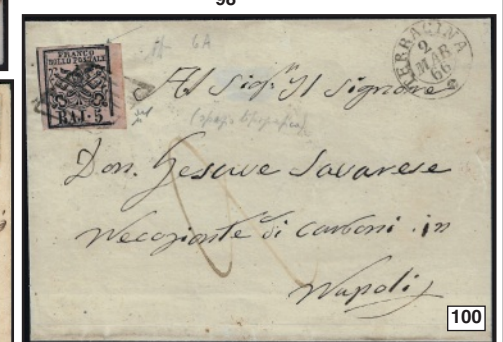 98
6A
FRANCO
BOLLO POSTALE
BAJ. 5
TERRACINA
2
MAR
66
Al Sig.r Il Signore
(spazio tipografico)
Don. Gesave Savarese
Necoziante di carboni in
Napoli
100